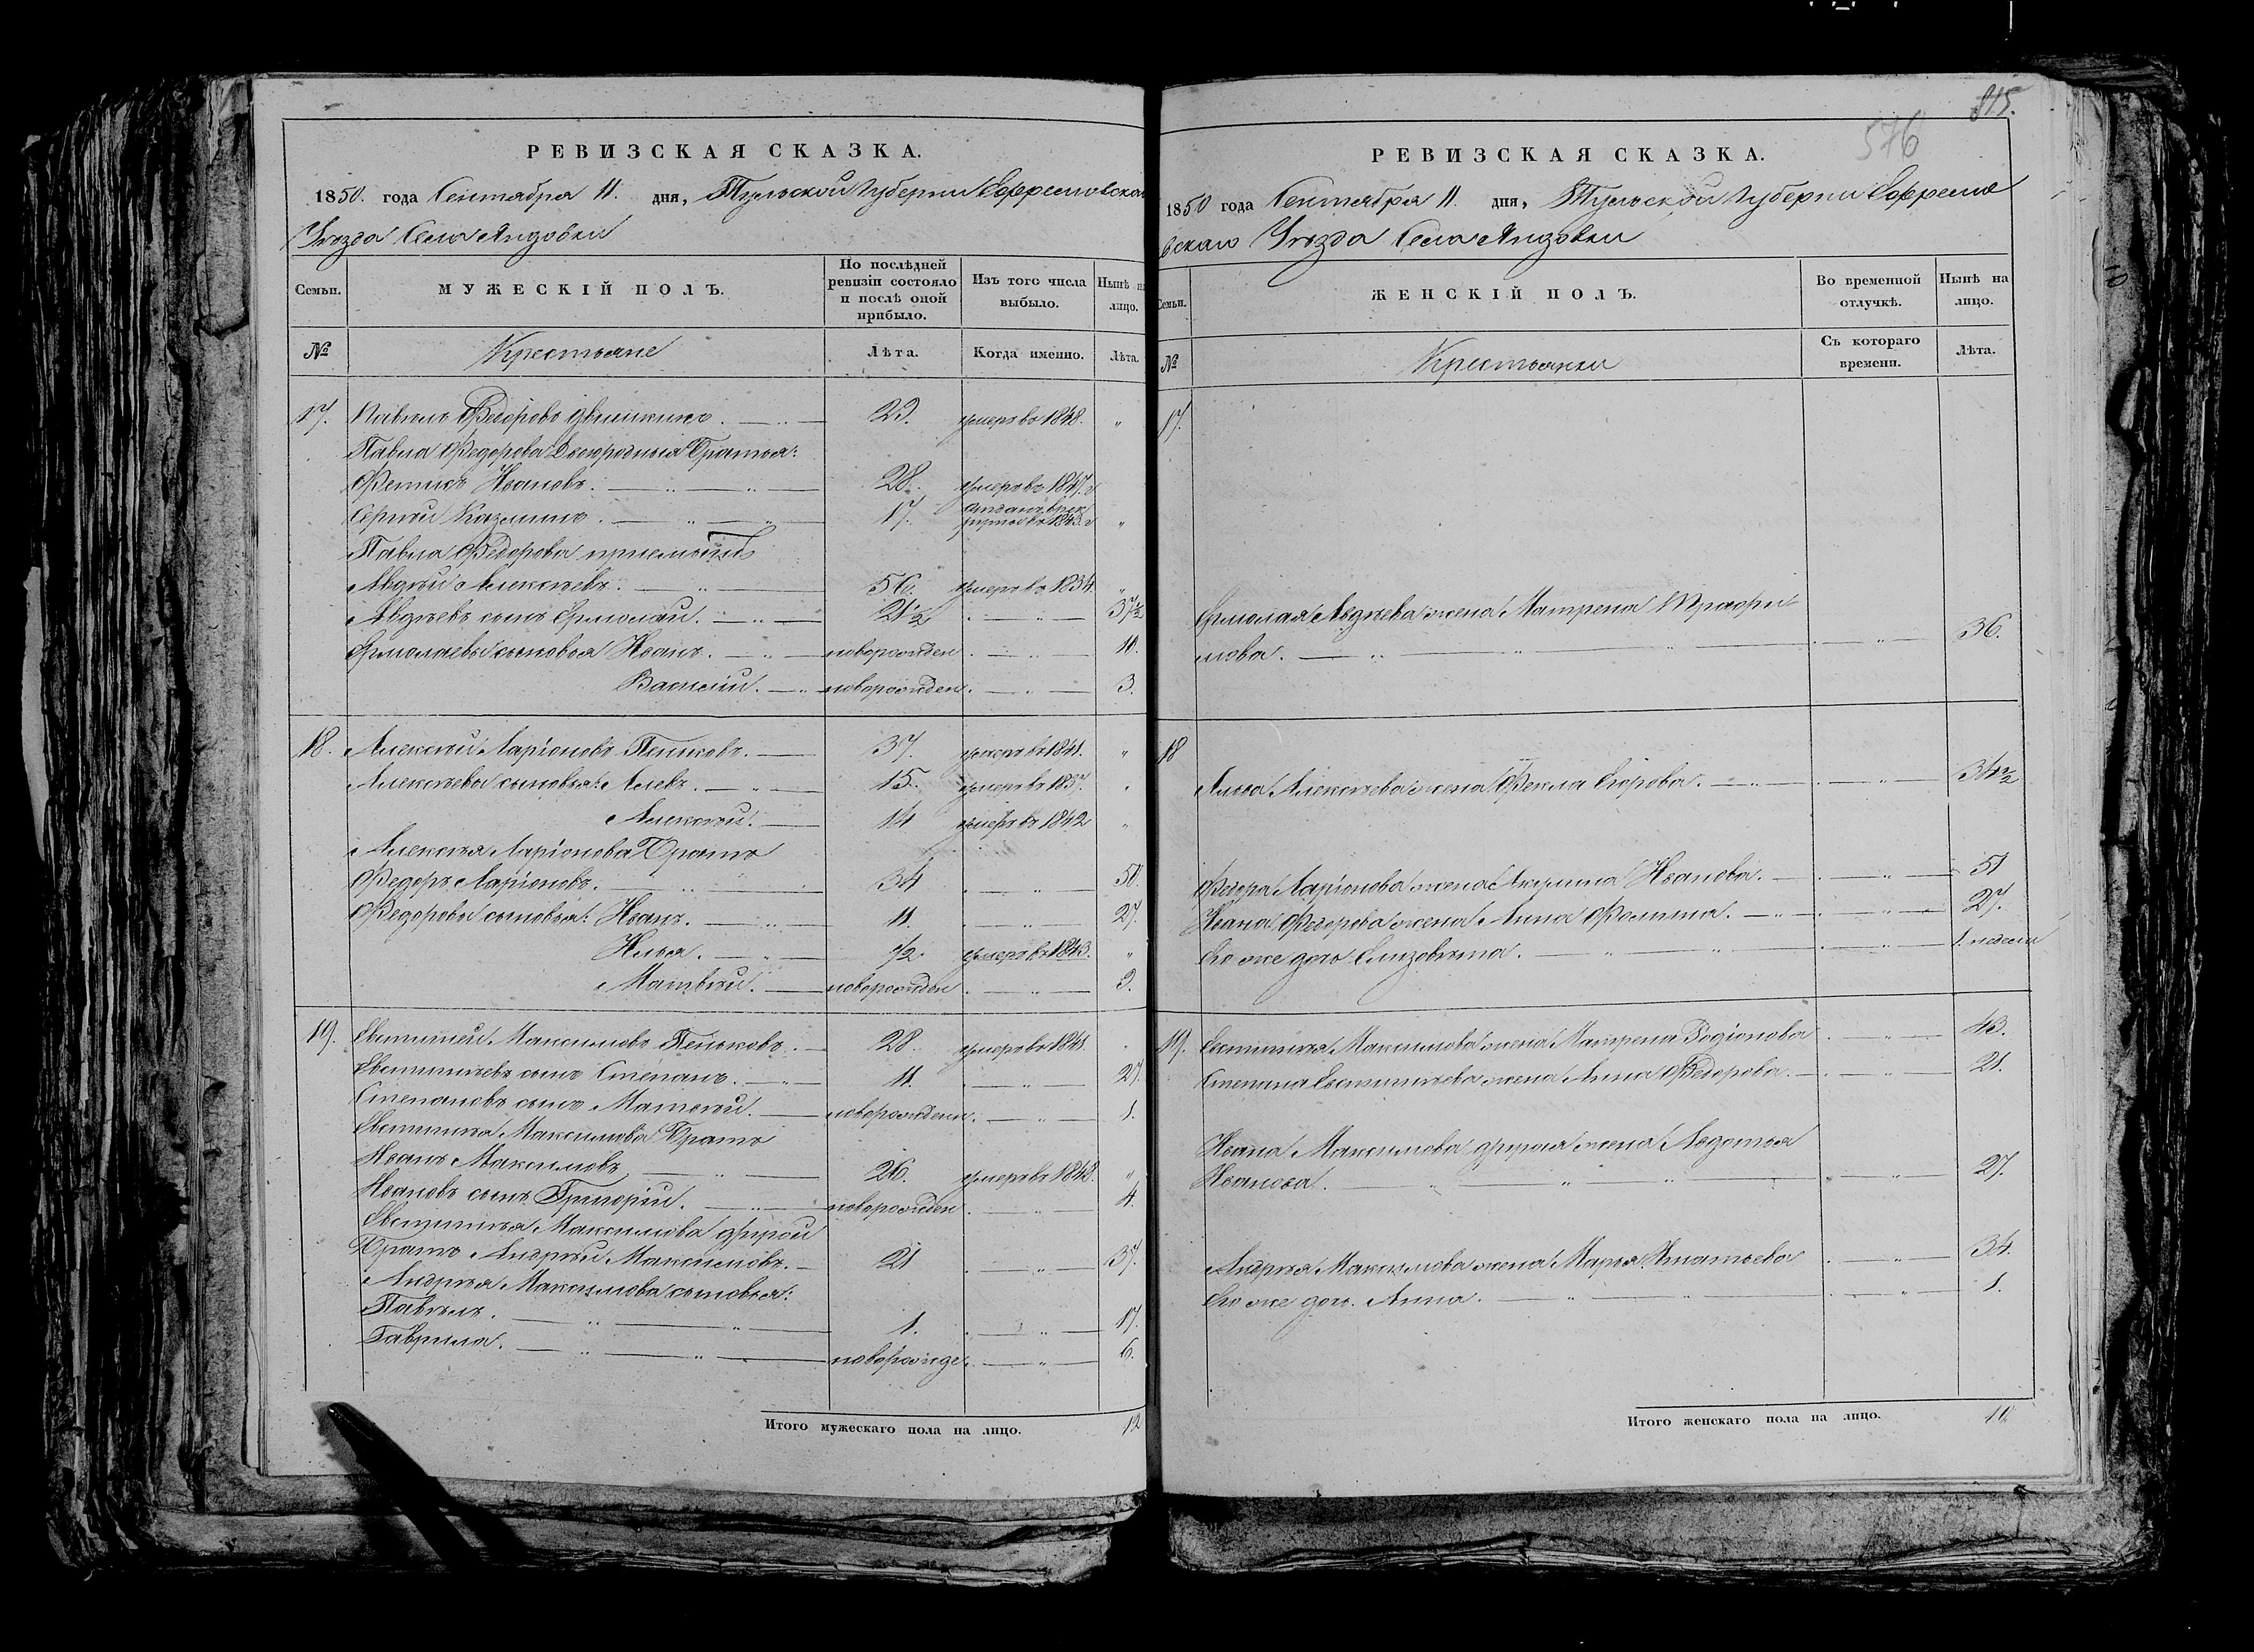 815.
576
РЕВИЗСКАЯ СКАЗКА.
1850. года Сентября 11. дня, Тульской Губернии Ефремовскаго
Уезда Села Яндовки
Семьи. МУЖЕСКІЙ ПОЛЪ. По послѣдней ревизіи состояло и послѣ оной прибыло. Изъ того числа выбыло. Нынѣ на лицо.
№ Крестьяне Лѣта. Когда именно. Лѣта.
17. Павелъ Федоровъ 29. умеръ въ 1848. "
Павла Федорова Двоюродныя Братья:
Ивановъ. 28. умеръ въ 1847.
Сергѣй Казминъ. 17. отданъ въ рекруты въ 1843. "
Павла Федорова приемышъ
Авдѣй Алексѣевъ. 56. умеръ въ 1834. "
Авдѣевъ сынъ Ермолай. 21½ 37½
Ермолаевы сыновья Иванъ. новорожден 10.
Василій. новорожден 3.
18. Алексѣй Ларіоновъ Пеньковъ. 37. умеръ въ 1841. "
Алексѣевы сыновья: 15. умеръ въ 1837. "
Алексѣй. 14 умеръ въ 1842 "
Алексѣя Ларіонова Братъ
Федоръ Ларіоновъ. 34 50.
Федоровы сыновья: Иванъ. 11. 27.
Илья. ½ умеръ въ 1843. "
Матвѣй. новорожден 9.
19. Евтиѳѣй Максимовъ Пеньковъ. 28. умеръ въ 1841. "
сынъ Степанъ. 11. 27.
Степановъ сынъ Матвѣй. новорожденн 1.
Максимова Братъ
Иванъ Максимовъ 26. умеръ въ 1848. "
Ивановъ сынъ Григорій. новорожден 4.
Максимова другой
Братъ Андрѣй Максимовъ. 21 37.
Андрѣя Максимова сыновья:
Павелъ. 1. 17.
Гаврила. новорожде 6.
Итого мужескаго пола на лицо. 12
РЕВИЗСКАЯ СКАЗКА.
1850 года Сентября 11. дня, Тульской Губернии Ефремо
вскаго Уезда Села Яндовки
Семьи. ЖЕНСКІЙ ПОЛЪ. Во временной отлучкѣ. Нынѣ на лицо.
№ Крестьянки Съ котораго времени. Лѣта.
17.
Ермолая Авдѣева жена Матрена Трофи
мова. 36.
18
Алексѣева жена Фекла Егорова. 34½
Федора Ларіонова жена Акулина Иванова. 51
Ивана Федорова жена Анна Фомина. 27.
Его же дочь Елизовѣта. 1. неделя
19. Максимова жена Матрена Родіонова 43.
Степана жена Анна Федорова. 21.
Ивана Максимова другая жена Авдотья
Иванова. 27.
Андрѣя Максимова жена Марья Игнатьева 34.
Его же дочь. Анна. 1.
Итого женскаго пола на лицо. 10